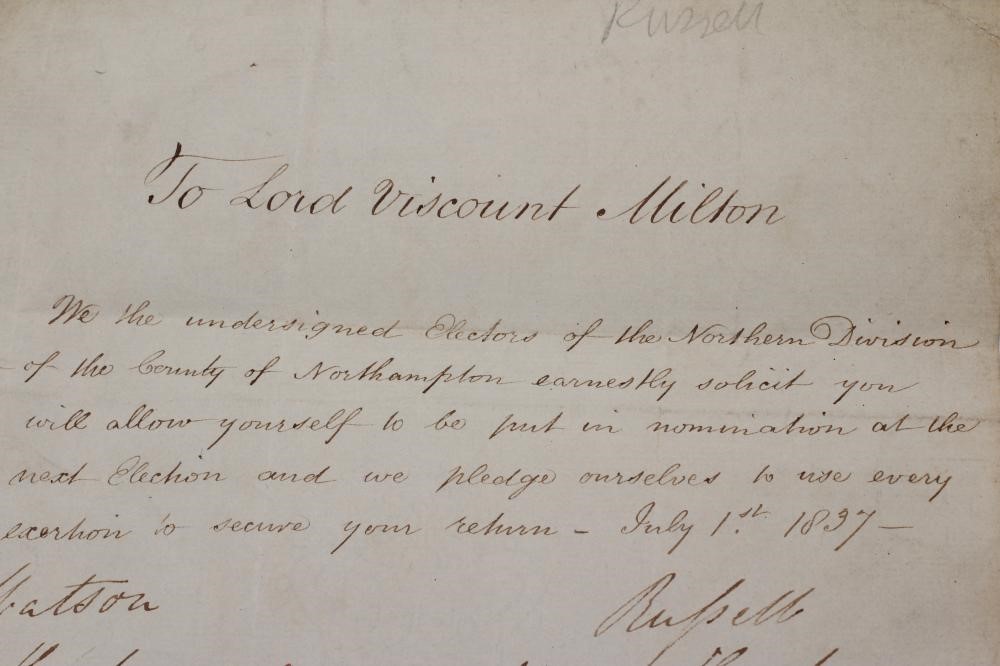 Russell
To Lord Viscount Milton
We the undersigned Electors of the Northern Division
of the County of Northampton earnestly solicit you
will allow yourself to be put in nomination at the
next Election and we pledge ourselves to use every
exertion to secure your return - July 1st. 1837 -
Watson
Russell